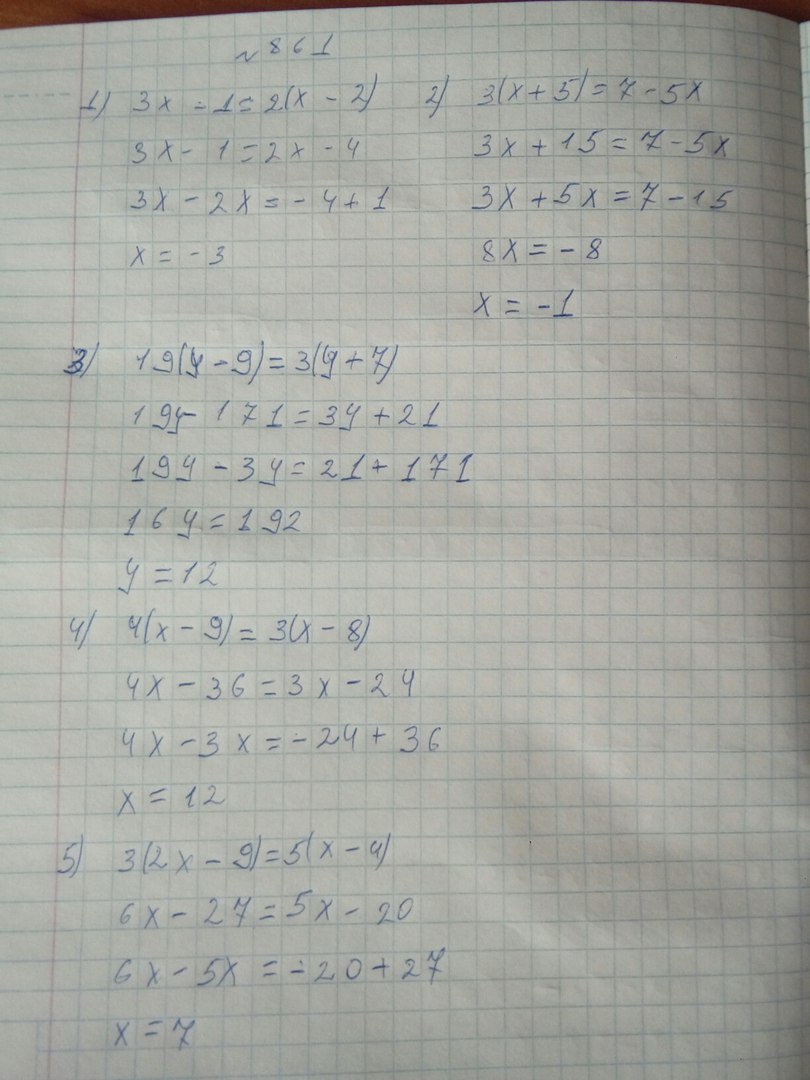 № 861
1) 3x - 1 = 2(x - 2)
3x - 1 = 2x - 4
3x - 2x = - 4 + 1
x = - 3
2) 3(x + 5) = 7 - 5x
3x + 15 = 7 - 5x
3x + 5x = 7 - 15
8x = - 8
x = - 1
3) 19(y - 9) = 3(y + 7)
19y - 171 = 3y + 21
19y - 3y = 21 + 171
16y = 192
y = 12
4) 4(x - 9) = 3(x - 8)
4x - 36 = 3x - 24
4x - 3x = - 24 + 36
x = 12
5) 3(2x - 9) = 5(x - 4)
6x - 27 = 5x - 20
6x - 5x = - 20 + 27
x = 7